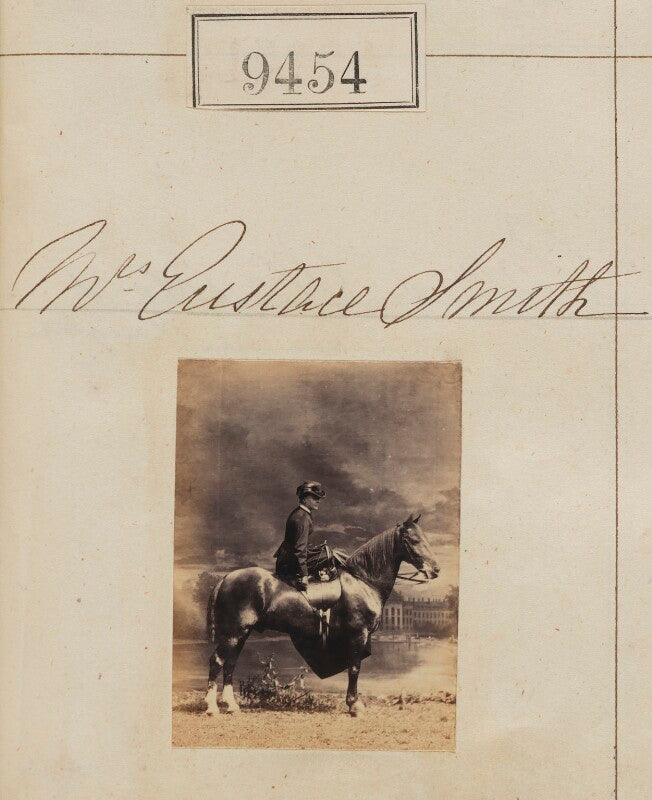 9454
Mrs. Eustace Smith